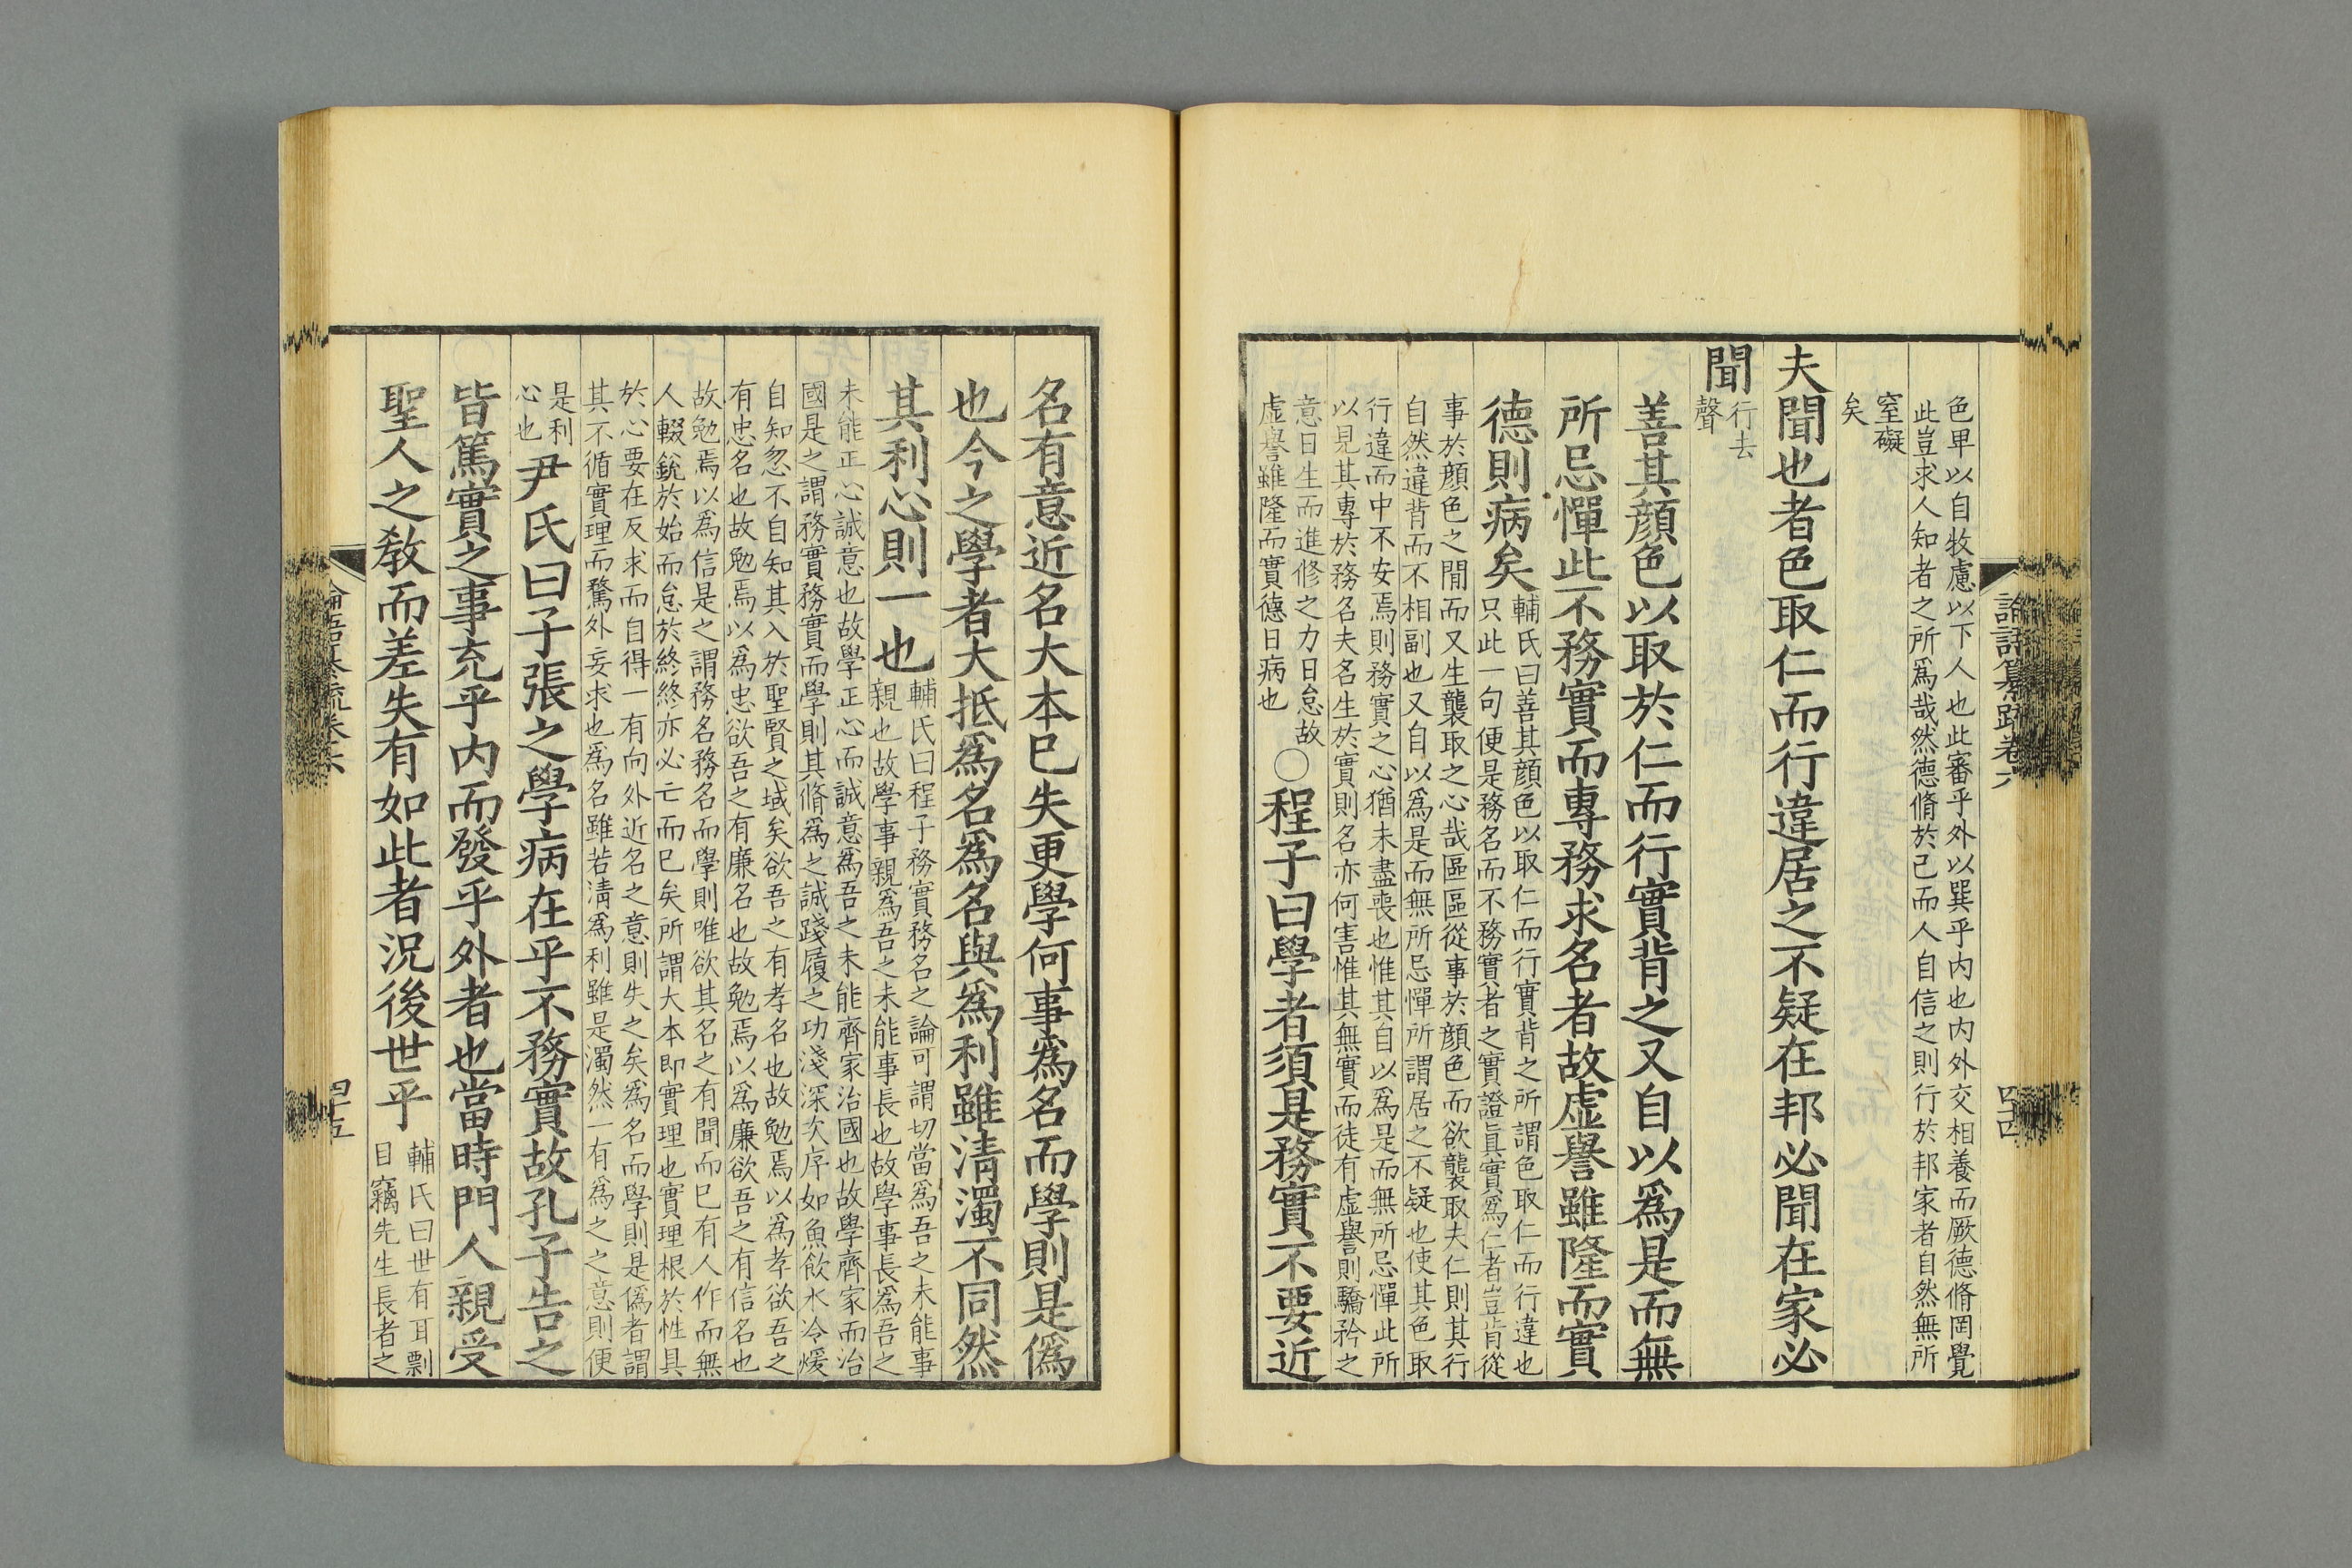 論語纂疏卷六
四十四
色卑以自牧慮以下人也此審乎外以巽乎內也內外交相養而厥德脩罔覺
此豈求人知者之所爲哉然德脩於已而人自信之則行於邦家者自然無所
窒礙
矣
夫聞也者色取仁而行違居之不疑在邦必聞在家必
聞
行去
聲
善其顔色以取於仁而行實背之又自以爲是而無
所忌憚此不務實而專務求名者故虛譽雖隆而實
德則病矣
輔氏曰善其顔色以取仁而行實背之所謂色取仁而行違也
只此一句便是務名而不務實者之實證眞實爲仁者豈肯從
事於顔色之閒而又生襲取之心哉區區從事於顔色而欲襲取夫仁則其行
自然違背而不相副也又自以爲是而無所忌憚所謂居之不疑也使其色取
行違而中不安焉則務實之心猶未盡喪也惟其自以爲是而無所忌憚此所
以見其專於務名夫名生於實則名亦何害惟其無實而徒有虛譽則驕矜之
意日生而進修之力日怠故
虛譽雖隆而實德日病也
○程子曰學者須是務實不要近
名有意近名大本已失更學何事爲名而學則是僞
也今之學者大抵爲名爲名與爲利雖淸濁不同然
其利心則一也
輔氏曰程子務實務名之論可謂切當爲吾之未能事
親也故學事親爲吾之未能事長也故學事長爲吾之
未能正心誠意也故學正心而誠意爲吾之未能齊家治國也故學齊家而治
國是之謂務實務實而學則其脩爲之誠踐履之功淺深次序如魚飮水冷煖
自知忽不自知其入於聖賢之域矣欲吾之有孝名也故勉焉以爲孝欲吾之
有忠名也故勉焉以爲忠欲吾之有廉名也故勉焉以爲廉欲吾之有信名也
故勉焉以爲信是之謂務名務名而學則唯欲其名之有聞而已有人作而無
人輟銳於始而怠於終終亦必亡而已矣所謂大本即實理也實理根於性具
於心要在反求而自得一有向外近名之意則失之矣爲名而學則是僞者謂
其不循實理而騖外妄求也爲名雖若淸爲利雖是濁然一有爲之之意則便
是利
心也
尹氏曰子張之學病在乎不務實故孔子告之
皆篤實之事充乎內而發乎外者也當時門人親受
聖人之敎而差失有如此者況後世乎
輔氏曰世有耳剽
目竊先生長者之
論語纂疏卷六
四十五